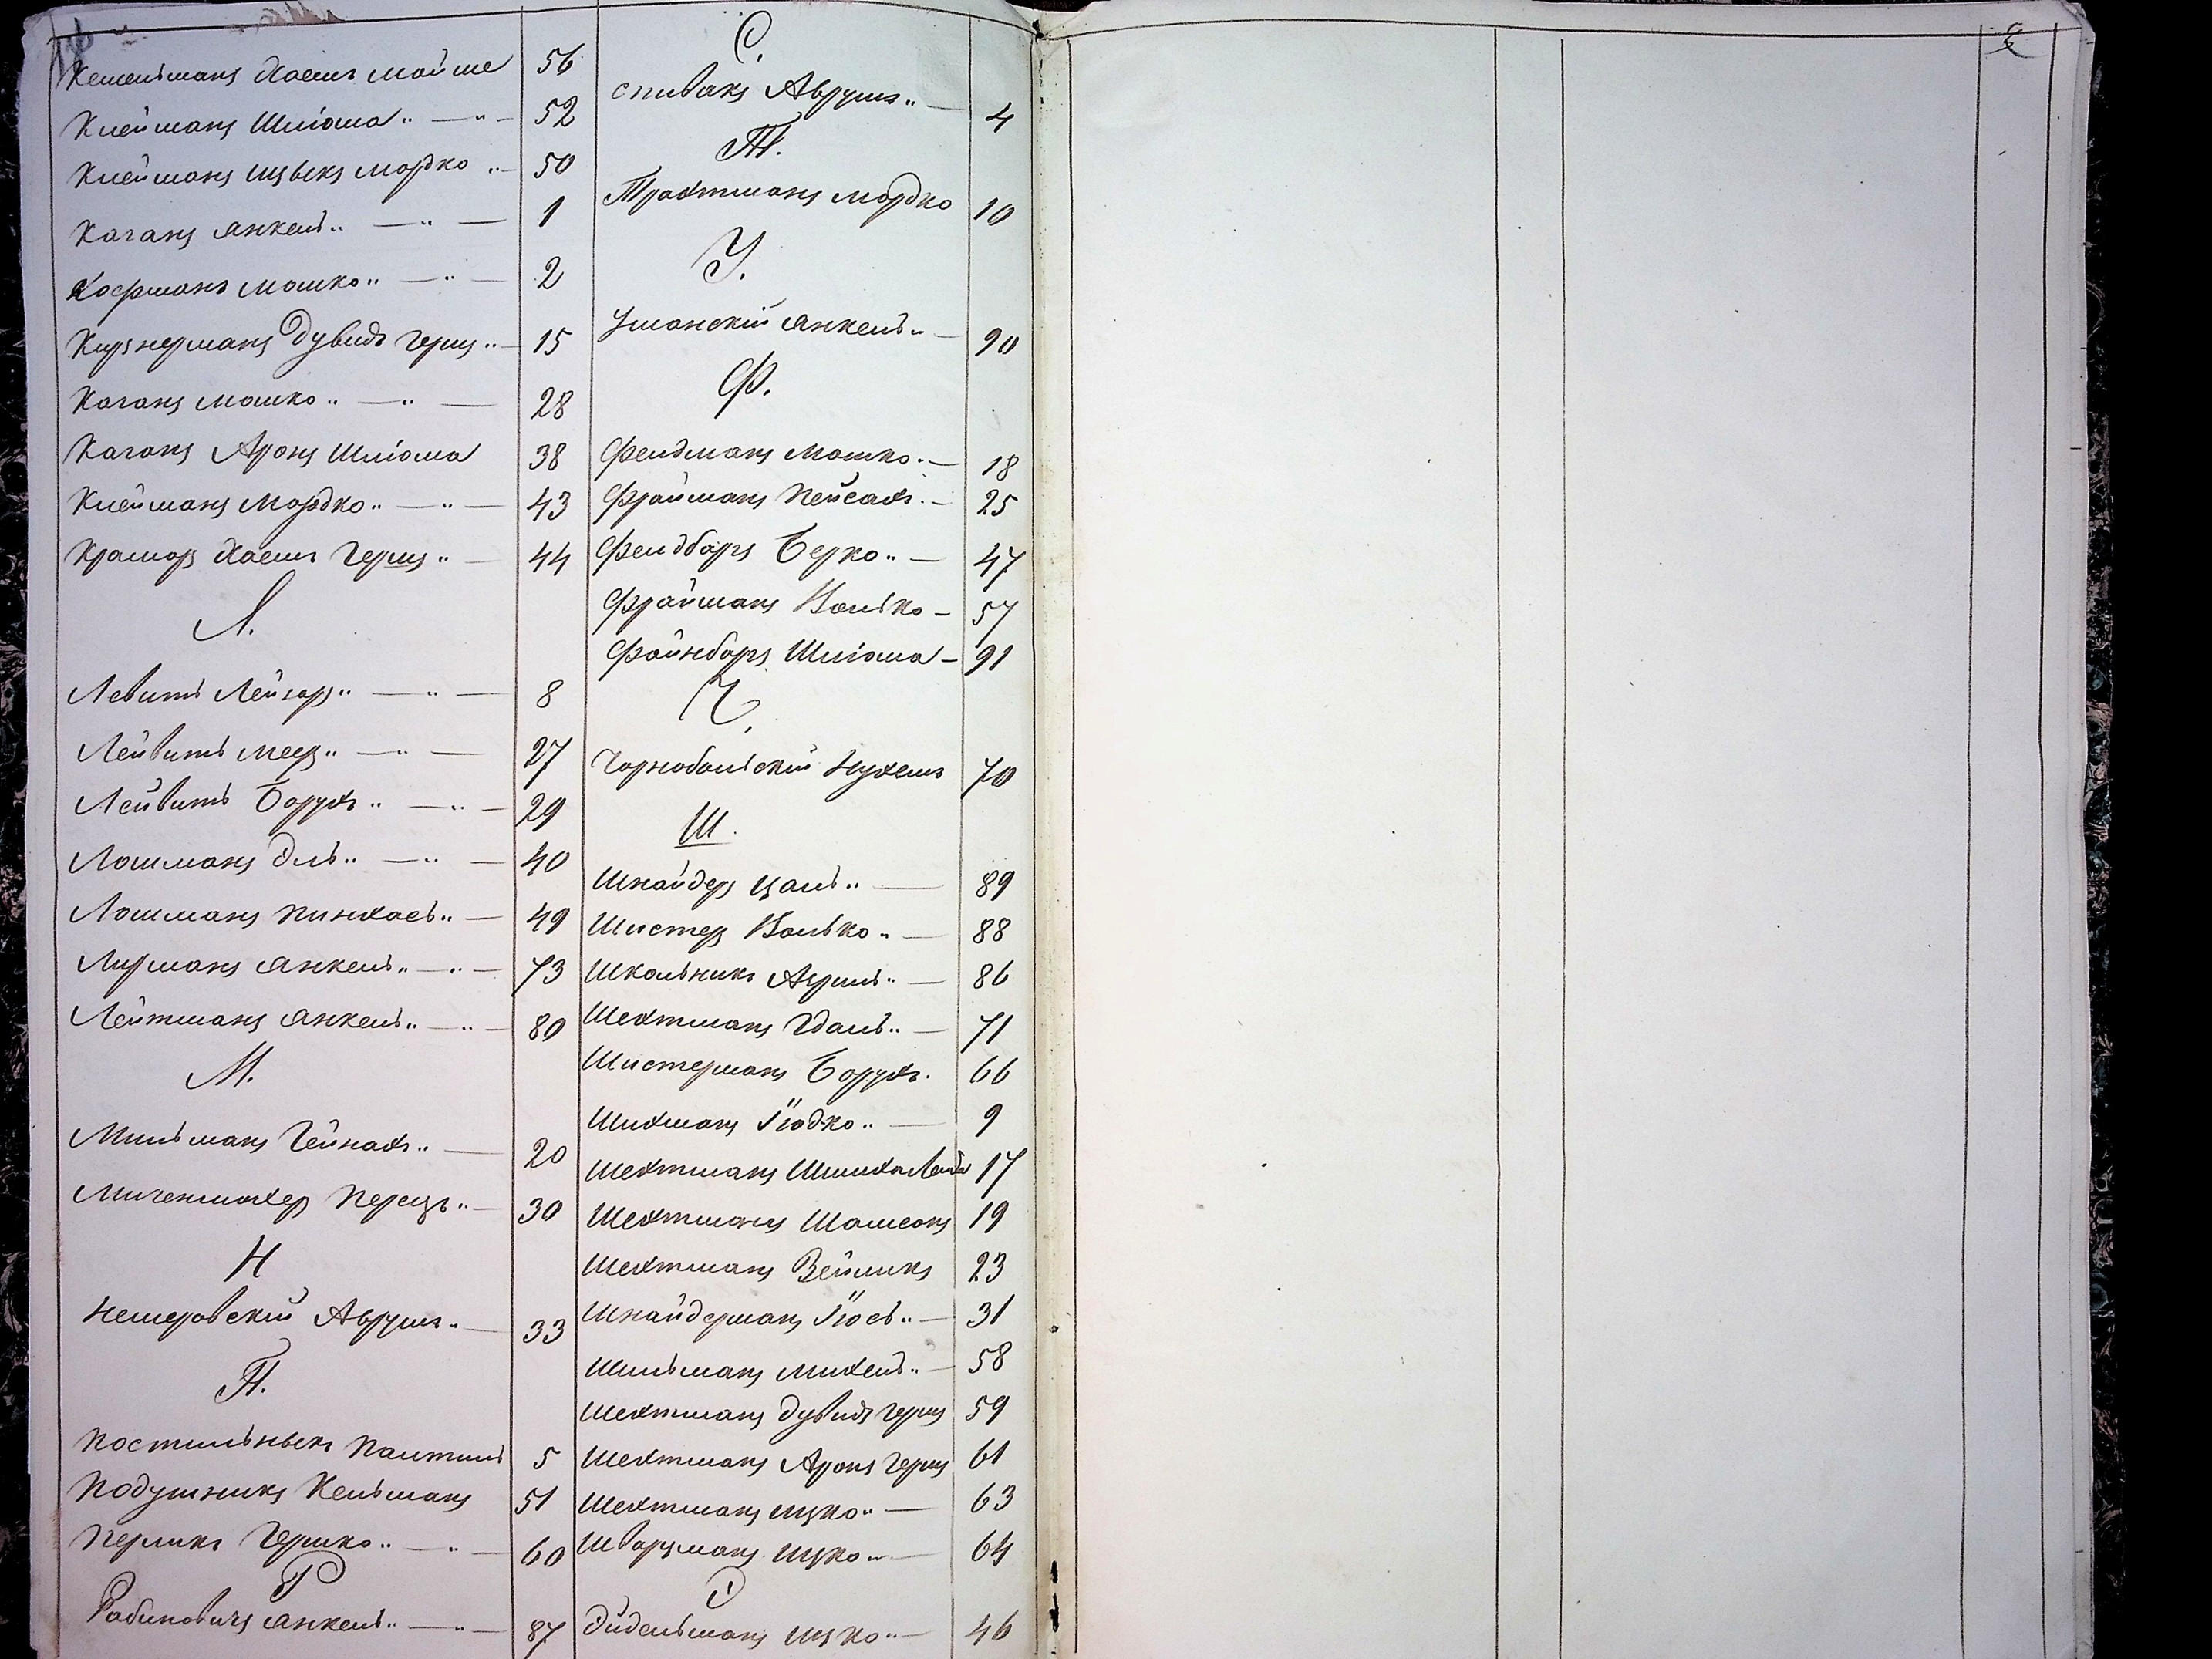 Кешельманъ Хаемъ Мойше 56
Клейманъ Шліома „ — „ — 52
Клейманъ Ицвекъ Мордко „ — 50
Каганъ Янкель „ — „ — 1
Кофманъ Мошко „ — „ — 2
Кирзнерманъ Дувидъ Герш „ — 15
Каганъ Мошко „ — „ — 28
Каганъ Аронъ Шліома 38
Клейманъ Мордко „ — „ — 43
Крамаръ Хаемъ Герш „ — 44
Л.
Левитъ Лейзоръ „ — „ — 8
Лейвитъ Меер „ — „ — 27
Лейвитъ Борухъ „ — „ — 29
Лошманъ Эль „ — „ — 40
Лошманъ Пинхасъ „ — 49
Лирманъ Янкель „ — „ — 73
Лейтманъ Янкель „ — „ — 80
М.
Мильманъ Гейнахъ „ — 20
Перецъ „ — 30
Н
Немеровскій Аврумъ „ — 33
П.
Постильнекъ Палтиль 5
Подушникъ Кельманъ 51
Перликъ Гершко „ — „ — 60
Р
Рабиновичъ Янкель „ — „ — 87
С.
Спивакъ Аврумъ „ — 4
Т.
Трахтманъ Мордко 10
У.
Уманскій Янкель „ — 90
Ф.
Фелдманъ Мошко — 18
Фрайманъ Пейсахъ — 25
Фелдбаръ Берко „ — 47
Фрайманъ Волько — 57
Файнбаръ Шліома — 91
Ч.
Чорнобольскій Нухемъ 70
Ш.
Шнайдеръ Цаль „ — 89
Шистеръ Волько „ — 88
Школьникъ „ — 86
Шехтманъ Гдаль „ — 71
Шистерманъ Борухъ. 66
Шихманъ Йюдко „ — 9
Шехтманъ 17
Шехтманъ Шамсонъ 19
Шехтманъ Зейликъ 23
Шнайдерманъ Йосъ „ — 31
Шильманъ Михель „ — 58
Шехтманъ Дувидъ Герш 59
Шехтманъ Аронъ Герш 61
Шехтманъ Ицко „ — 63
Шварцманъ Ицко „ — 64
Э
Эйдельманъ Ицко „ — 46